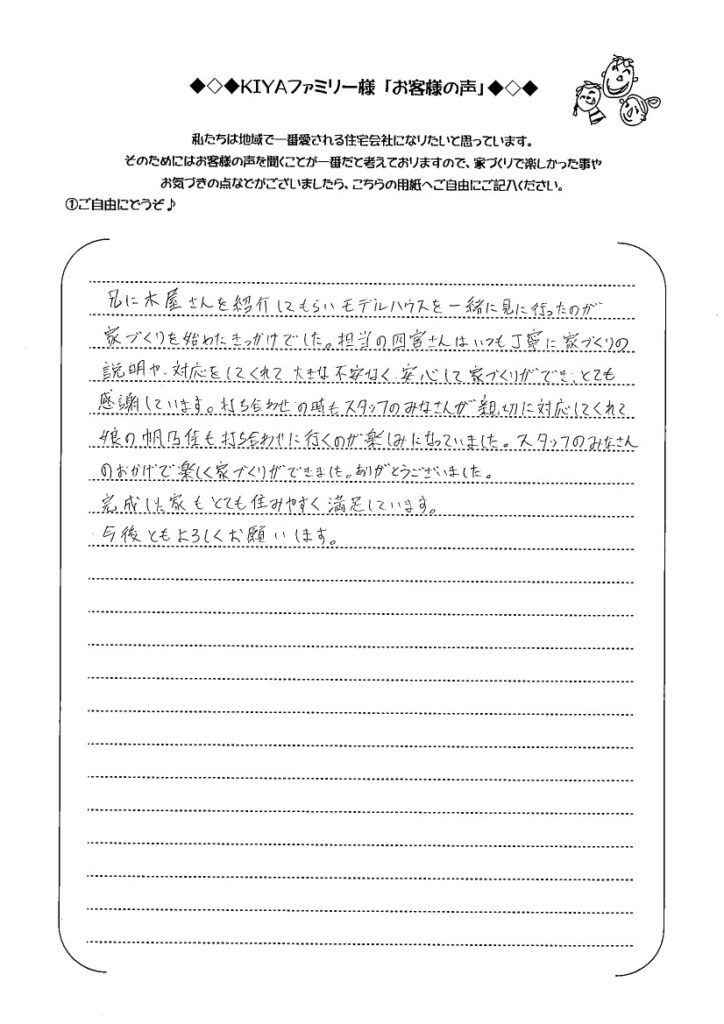 ◆◇◆KIYAファミリー様「お客様の声」◆◇◆
私たちは地域で一番愛される住宅会社になりたいと思っています。
そのためにはお客様の声を聞くことが一番だと考えておりますので、家づくりで楽しかった事や
お気づきの点などがございましたら、こちらの用紙へご自由にご記入ください。
①ご自由にどうぞ♪
兄に木屋さんを紹介してもらいモデルハウスを一緒に見に行ったのが
家づくりを始めたきっかけでした。担当の四宮さんはいつも丁寧に家づくりの
説明や、対応をしてくれて大きな不安なく、安心して家づくりができ、とても
感謝しています。打ち合わせの時もスタッフのみなさんが親切に対応してくれて
娘の帆乃佳も打ち合わせに行くのが楽しみになっていました。スタッフのみなさん
のおかげで楽しく家づくりができました。ありがとうございました。
完成した家もとても住みやすく満足しています。
今後ともよろしくお願いします。